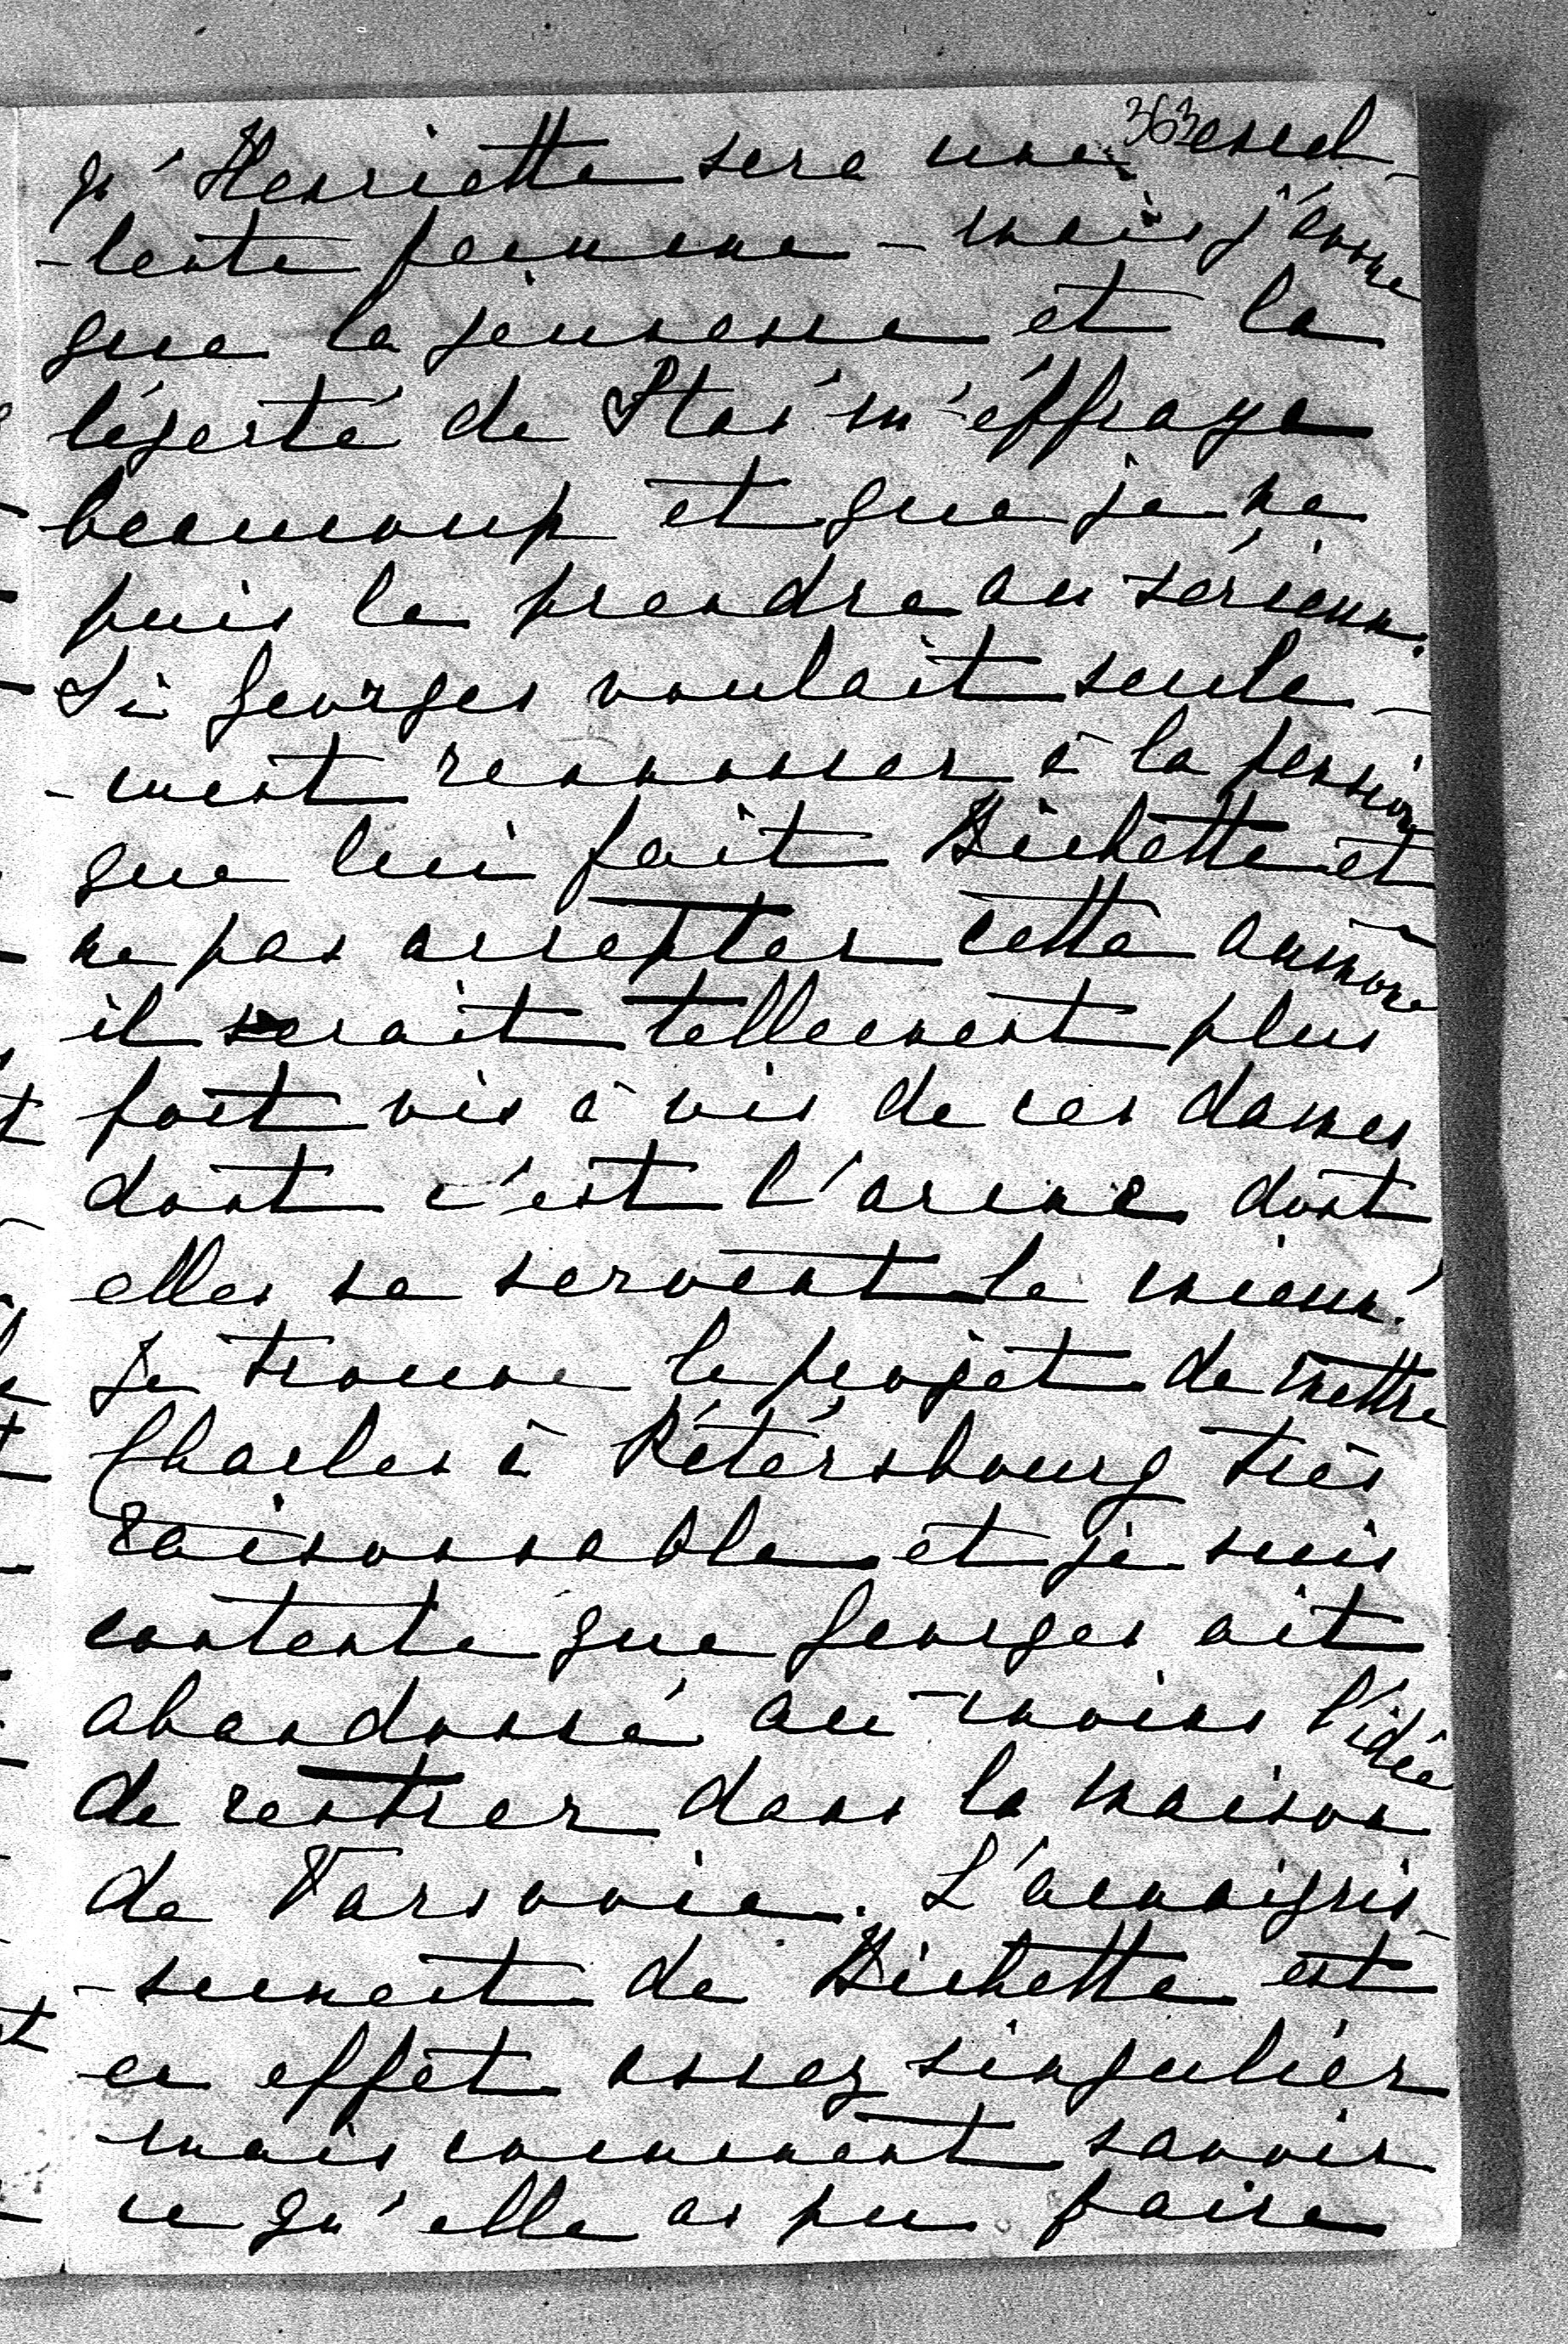 363
qu'Henriette sera une excel-
-lente femme - mais j'avoue
que la jeunesse et la
légerté de Stas' m'éffraye
beaucoup et que je ne
puis le prendre au sérieux.
Si Georges voulait seule-
-ment renoncer à la pension
que lui fait Bichette et
ne pas accepter cette aumône
il serait tellement plus
fort vis à vis de ces dames
dont c'est l'arme dont
elles se servent le mieux!
Je trouve le projet de mettre
Charles à Pétérsbourg très
raisonnable et je suis
contente que Georges ait
abandonné au moins l'idée
de rentrer dans la maison
de Varsovie. L'amaigris-
-sement de Bichette est
en effet assez singulier
mais comment savoir
ce qu'elle a pu faire